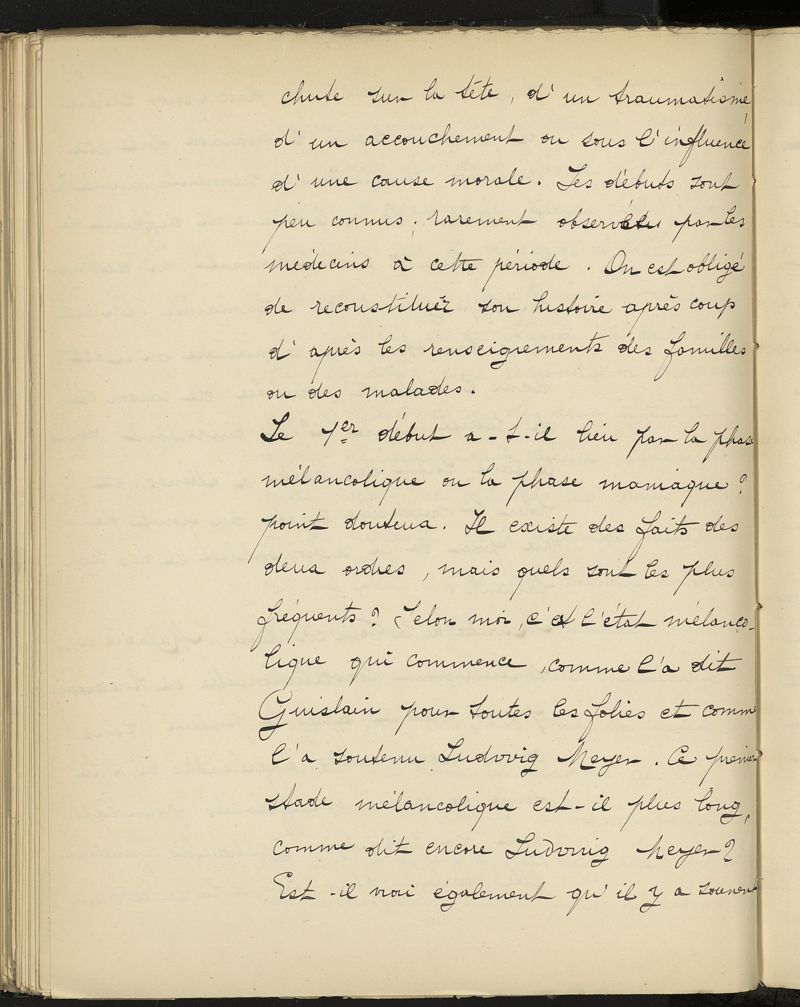 chute sur la tête, d'un traumatisme
d'un accouchement ou sous l'influence
d'une cause morale. Les débuts sont
peu connus ; rarement observés par les
médecins à cette période. On est obligé
de reconstituer son histoire après coup
d'après les renseignements des familles
ou des malades.
Le 1er début a-t-il lieu par la phase
mélancolique ou la phase maniaque ?
point douteux. Il existe des faits des
deux ordres, mais quels sont les plus
fréquents ? Selon moi, c'est l'état mélanco-
lique qui commence, comme l'a dit
Guislain pour toutes les folies et comme
l'a soutenu Ludwig Meyer. Ce premier
stade mélancolique est-il plus long,
comme dit encore Ludwig Meyer ?
Est-il vrai également qu'il y a souvent